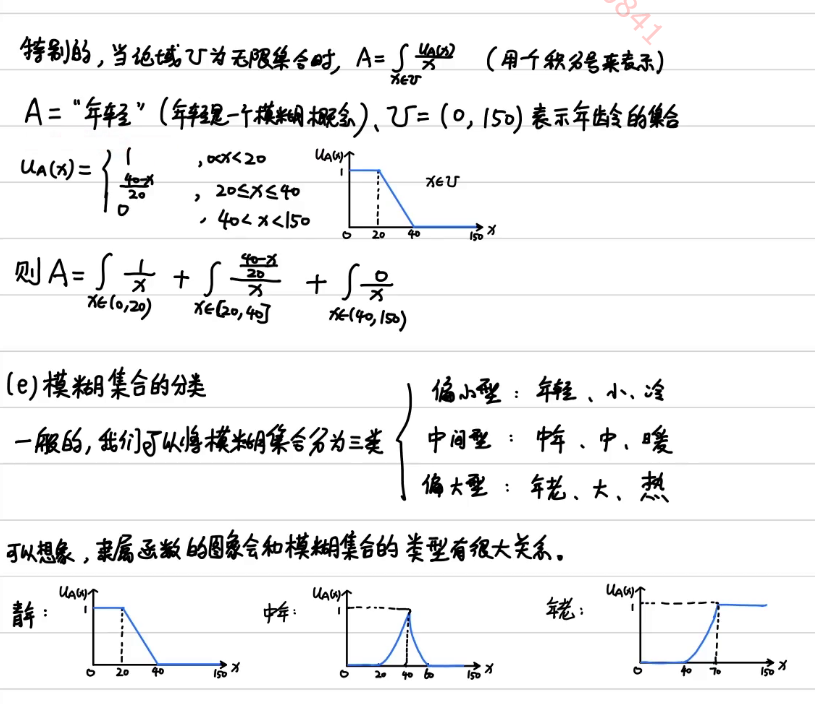 841
特别的，当论域U为无限集合时，A=∫x∈U uA(x)/x （用个积分号来表示）
A="年轻"（年轻是一个模糊概念）、U=(0,150)表示年龄的集合
uA(x)={ 1 ,0<x<20
(40-x)/20 , 20≤x≤40
0 , 40<x<150
uA(x) 1 x∈U 0 20 40 150 x
则A=∫x∈(0,20) 1/x + ∫x∈[20,40] ((40-x)/20)/x + ∫x∈(40,150) 0/x
(e)模糊集合的分类
一般的，我们可以将模糊集合分为三类
偏小型：年轻、小、冷
中间型：中年、中、暖
偏大型：年老、大、热
可以想象，隶属函数的图象会和模糊集合的类型有很大关系。
青年： uA(x) 1 0 20 40 150 x
中年： uA(x) 1 0 20 40 60 150 x
年老： uA(x) 1 0 40 70 150 x